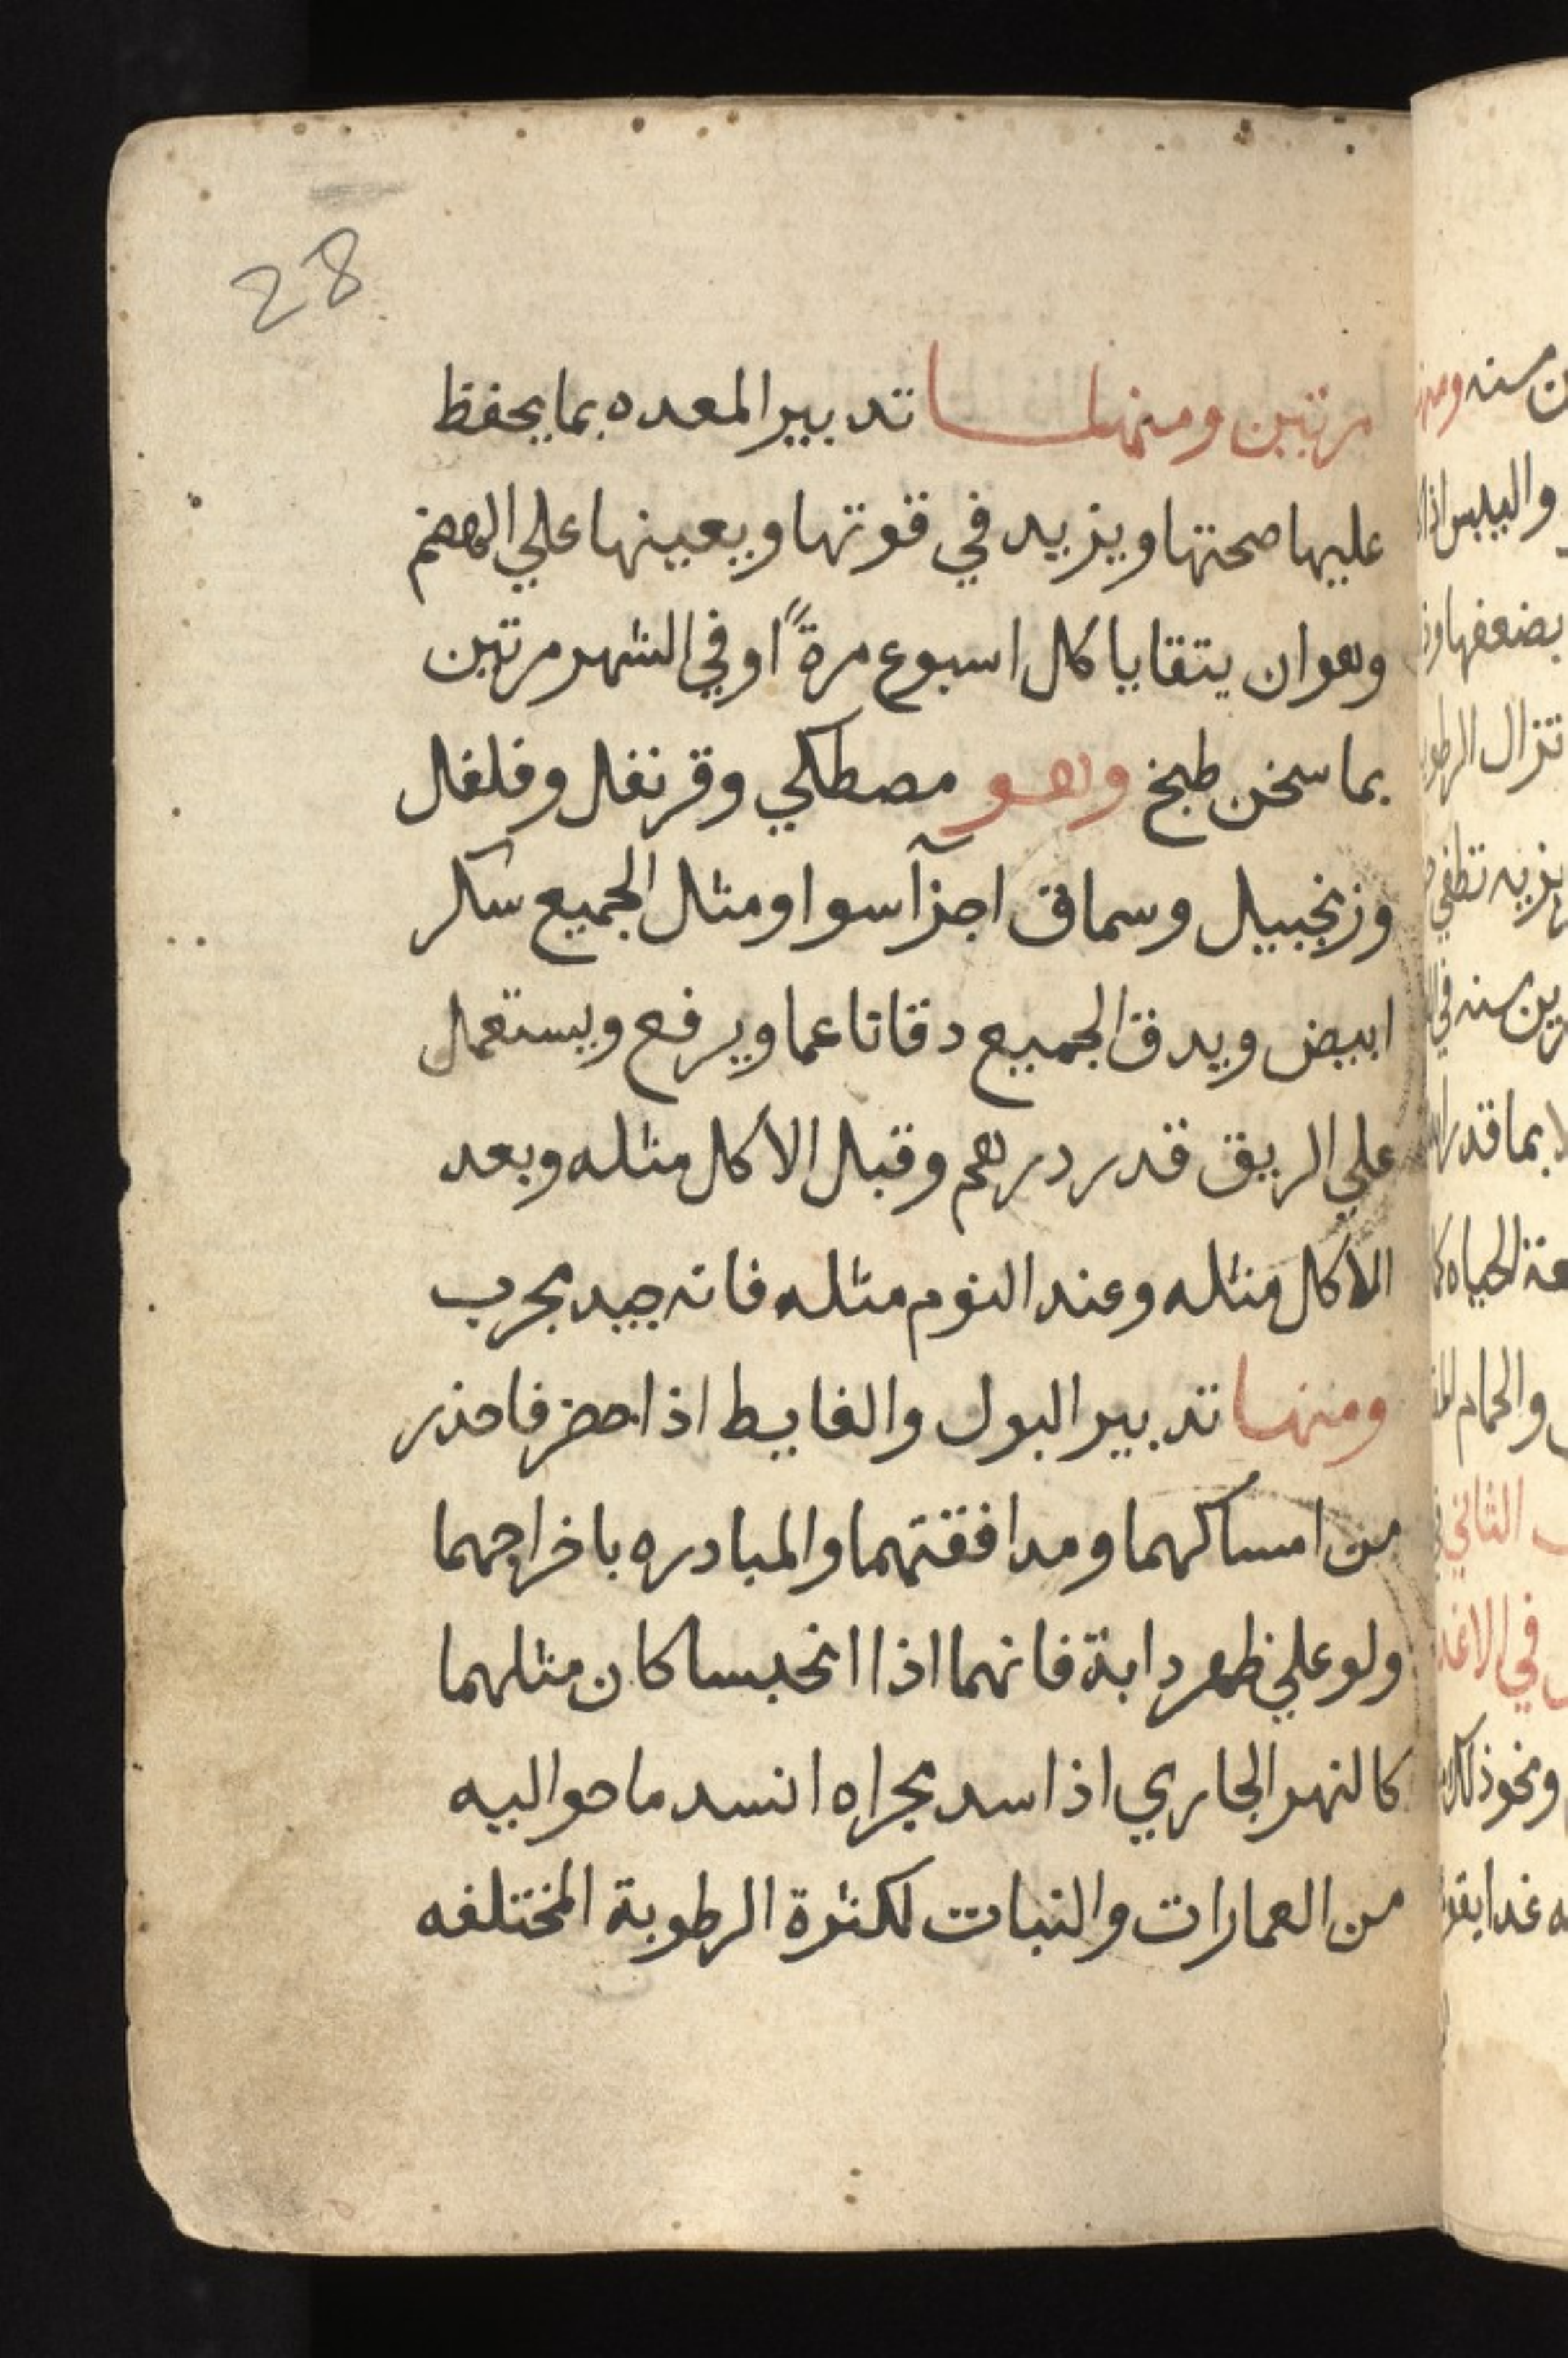 28
مرتين ومنها تدبير المعده بما يحفظ
عليها صحتها ويزيد في قوتها ويعينها علي الهضم
وهو ان يتقايا كل اسبوع مرةً او في الشهر مرتين
بما سخن طبخ وهو مصطكي وقرنفل وفلفل
وزنجبيل وسماق اجزآ سوا ومثل الجميع سكر
ابيض ويدق الجميع دقا ناعما ويرفع ويستعمل
علي الريق قدر درهم وقبل الاكل مثله وبعد
الاكل مثله وعند النوم مثله فانه جيد مجرب
ومنها تدبير البول والغايط اذا حضر فاحذر
من امساكهما ومدافقتهما والمبادره باخراجهما
ولو علي ظهر دابة فانهما اذا انحبسا كان مثلهما
كالنهر الجاري اذا سد مجراه انسد ما حواليه
من العمارات والنبات لكثرة الرطوبة المختلفه